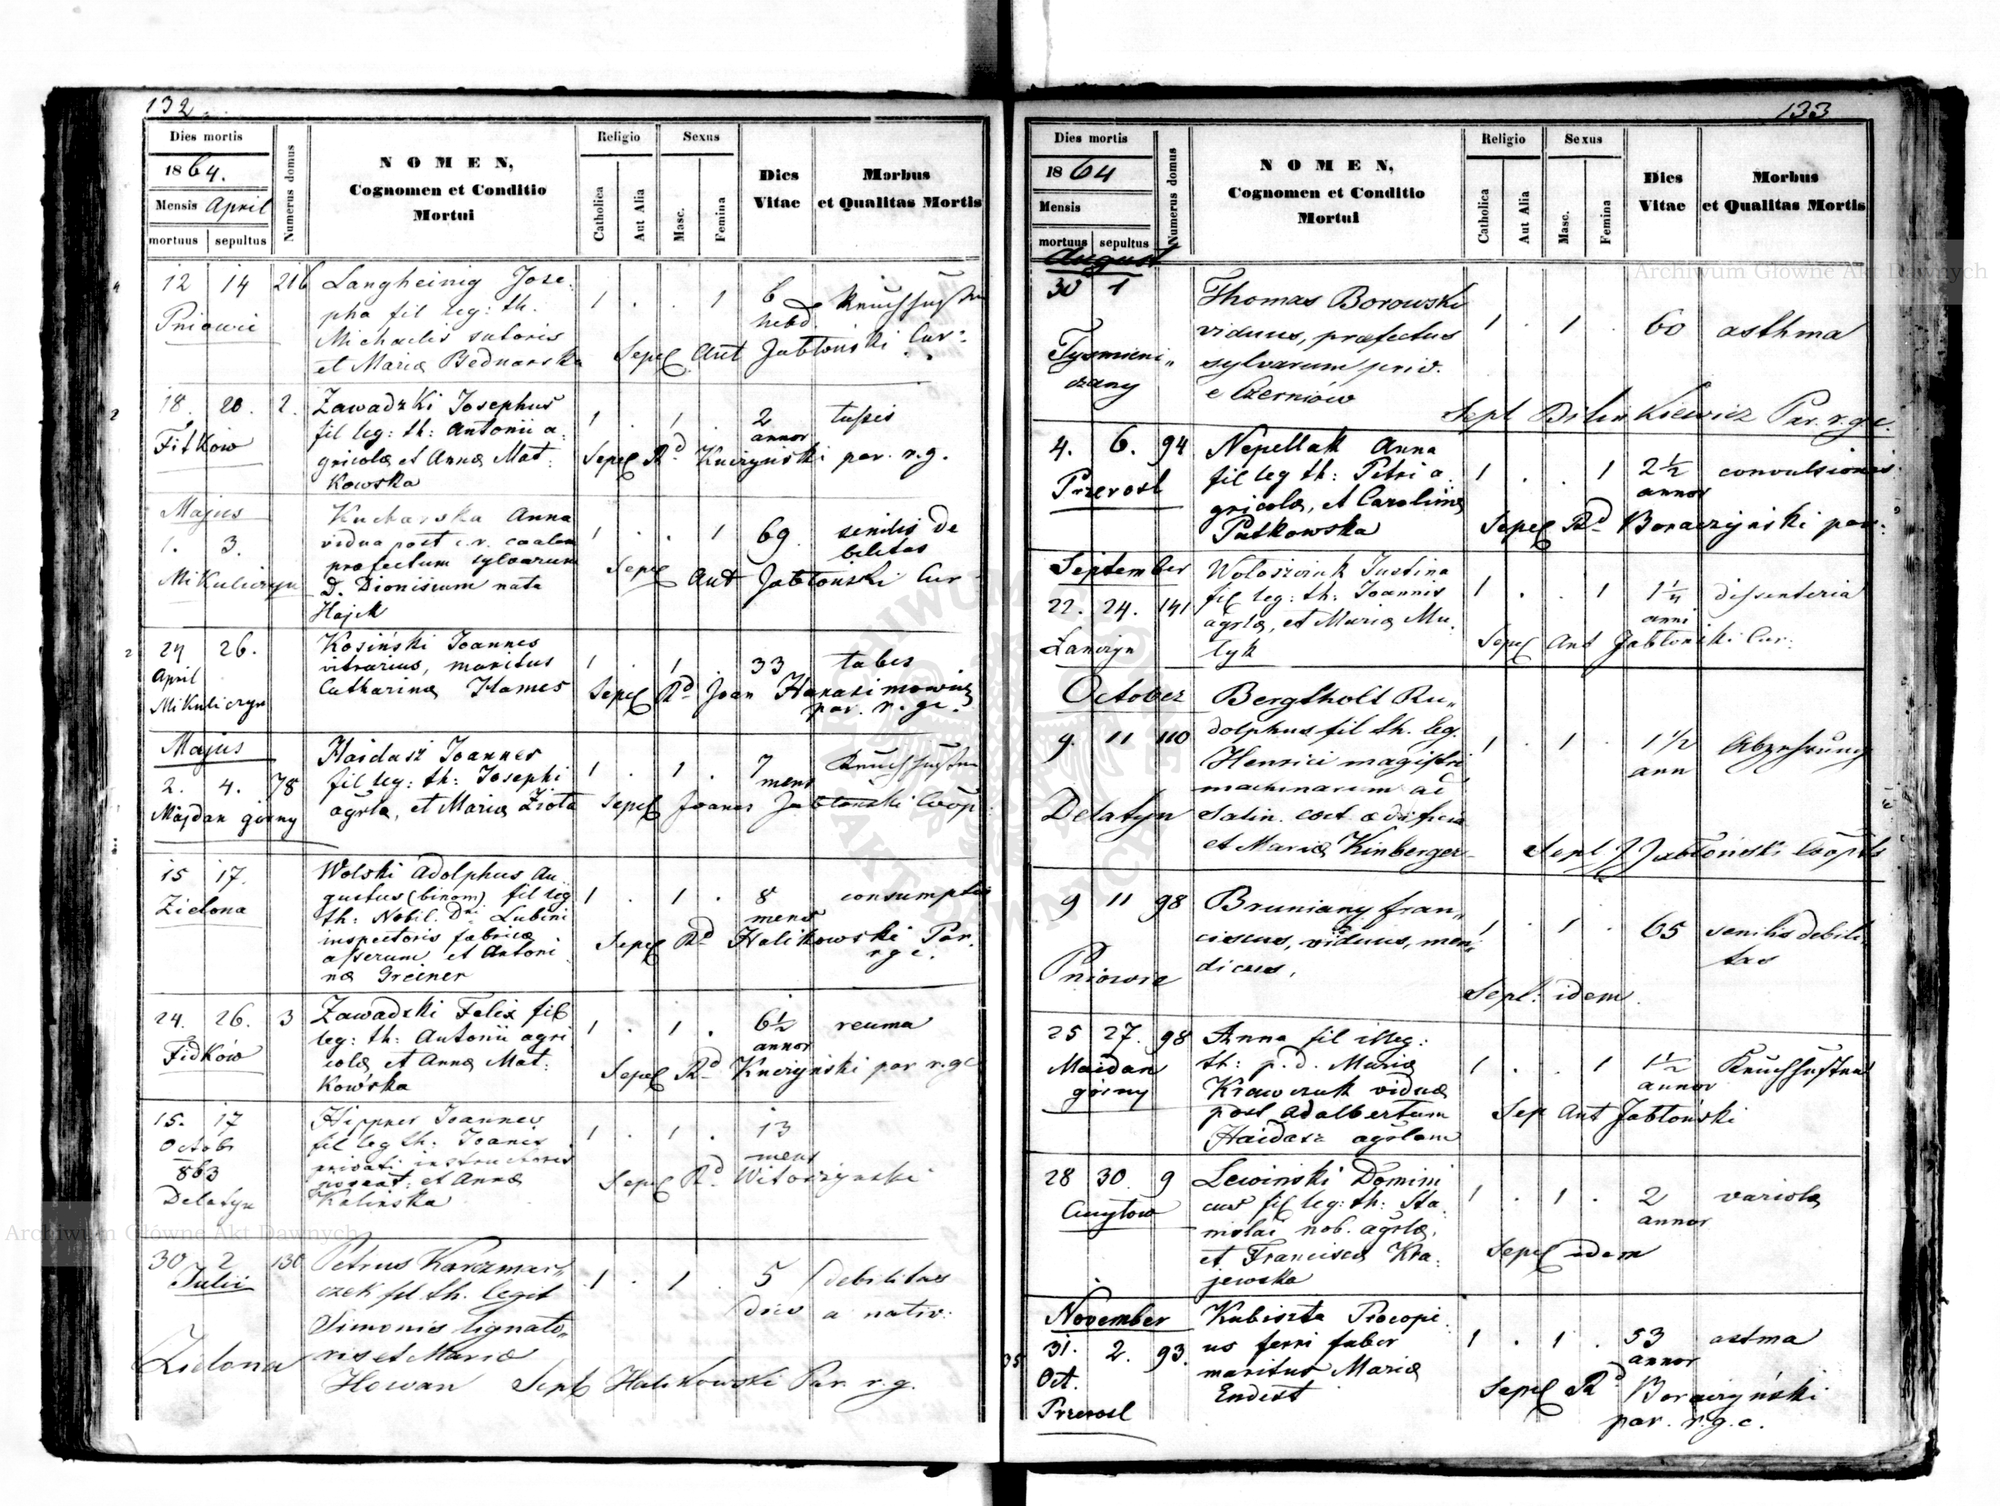 132
Dies mortis
1864.
Mensis April
mortuus sepultus
Numerus domus
NOMEN,
Cognomen et Conditio
Mortui
Religio
Catholica
Aut Alia
Sexus
Masc.
Femina
Dies
Vitae
Morbus
et Qualitas Mortis
12 14 216 Langheinig Jose-
pha fil leg: th.
Michaelis sutoris
et Mariæ Bednarska
Pniowie
1 . . 1 6 hebd. Keuchhusten
Sepel Ant Jabłoński Cur:
18. 20. 2. Zawadzki Josephus
fil leg: th: Antonii a-
gricolæ et Annæ Mat-
kowska
Fitków
1 . 1 . 2 annor tussis
Sepel Rd Knirzyński par. r.g.
Majus
1. 3.
Mikuliczyn
Kucharska Anna
vidua post c.r. caalem
profectum sylvarum
D. Dionisium nata
Hajek
1 . . 1 69 senilis de
bilitas
Sepel Ant Jabłoński Cur
24 26.
April
Mikuliczyn
Kosiński Joannes
vitrarius, maritus
Catharinæ Hames
1 . 1 33 tabes
Sepel Rd Joan Harasimowicz
par. r. gc.
Majus
2. 4. 78
Majdan górny
Haidasz Joannes
fil leg: th: Josephi
agrlæ, et Mariæ Ziota
1 . 1 . 7 mens Keuchhusten
Sepel Joanes Jabłoński Coop
15 17.
Zielona
Wolski Adolphus Au-
gustus (binom) fil leg
th: Nobil. Dni Lubini
inspectoris fabricæ
asserum et Antoni
næ Greiner
1 . 1 . 8 mens consumptio
Sepel Rd Halikowski Par.
rgc.
24. 26. 3
Fidków
Zawadzki Felix fil
leg: th: Antonii agri
colæ et Annæ Mat-
kowska
1 . 1 . 6½ annor reuma
Sepel Rd Knirzyński par r.gc
15. 17
Octobr
863
Delatyn
Hippner Joannes
fil leg th: Joanis
privati instructoris
et Annæ
Kalinska
1 . 1 . 13 mens
Sepel Rd Witoszynski
30 2 130
Julii
Zielona
Petrus Karzmar-
czek fil th. legit
Simonis lignato-
ris et Mariæ
Howan
1 . 1 . 5 dies debilitas
a nativ.
Sepl Halikowski Par. r. g.
133
Dies mortis
1864
Mensis
mortuus sepultus
Numerus domus
NOMEN,
Cognomen et Conditio
Mortui
Religio
Catholica
Aut Alia
Sexus
Masc.
Femina
Dies
Vitae
Morbus
et Qualitas Mortis
August
30 1
Tysmieni-
czany
Thomas Borowski
viduus, præfectus
sylvarum priv.
e Czerniów
1 . 1 . 60 asthma
Sepl Bilinkiewicz Par. r. gc.
4. 6. 94
Przerosl
Nepellak Anna
fil leg th: Petri a
gricolæ, et Carolinæ
Putkowska
1 . . 1 2½ annor convulsiones
Sepel Rd Boraczyński par:
September
22. 24. 141
Lanczyn
Wołoszczuk Justina
fil leg: th: Joannis
agrlæ, et Mariæ Mu-
lyk
1 . . 1 1¼ anni dissenteria
Sepel Ant Jabłoński Cur.
October
9. 11 110
Delatyn
Bergtholt Ru-
dolphus fil th. leg.
Henrici magistri
machinarum ad
Salin. coct. ædificia
et Mariæ Kinberger
1 . 1 . 1½ ann Abzehrung
Sepl J Jabłoński Coopts
9 11 98
Pniowie
Bruniany fran-
ciscus, viduus, men-
dicus,
1 . 1 . 65 senilis debili-
tas
Sepl: idem.
25 27. 98
Maidan
górny
Anna fil illeg:
th: p. d. Mariæ
Krawczuk viduæ
post Adalbertum
Haidasz agrlam
1 . . 1 1½ annor Keuchhusten
Sep Ant Jabłoński
28 30. 9
Cuculow
Lewiński Domini
cus fil leg: th: Sta-
nislai nob. agrlæ,
et Franciscæ Kra-
jewska
1 . 1 . 2 annor variola
Sepel idem
November
31. 2. 93.
Oct.
Przerosl
Kubiszta Procopi-
us ferri faber
maritus Mariæ
Endist
1 . 1 . 53 annor astma
Sepel Rd Boraczyński
par. r.g.c.
Archiwum Główne Akt Dawnych
Archiwum Główne Akt Dawnych
ARCHIWUM GŁÓWNE AKT DAWNYCH